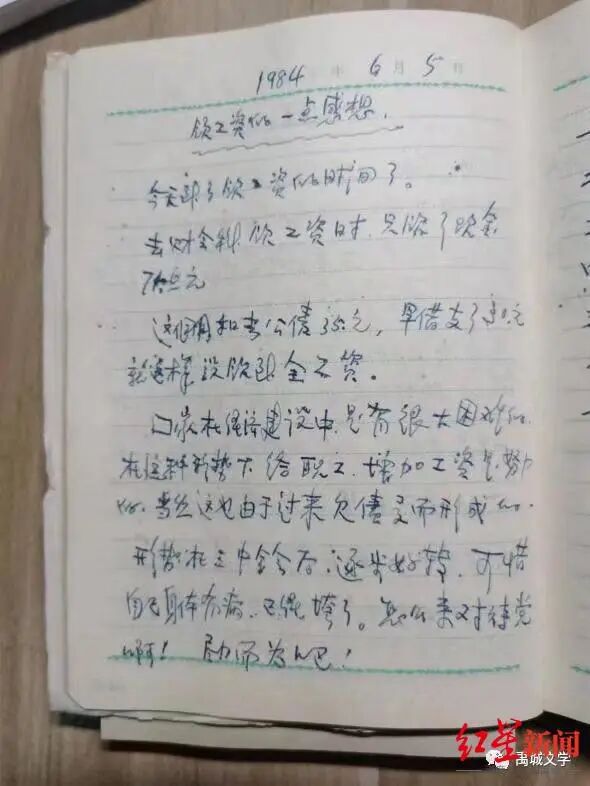 1984 年 6 月 5 日
领工资的一点感想.
今天到了领工资的时间了。
去财会科领工资时.只领了现金
元
这个月扣去公债35元,早借支了30元
就这样没领到全工资。
国家在经济建设中.是有很大困难的.
在这种形势下给职工.增加工资是努力
的.当然这也由于过来欠债多而形成的.
形势在三中全会后.逐步好转.可惜
自己身体有病.已是垮了。怎么来对待党
啊!勉力而为吧!
红星新闻
禹城文学